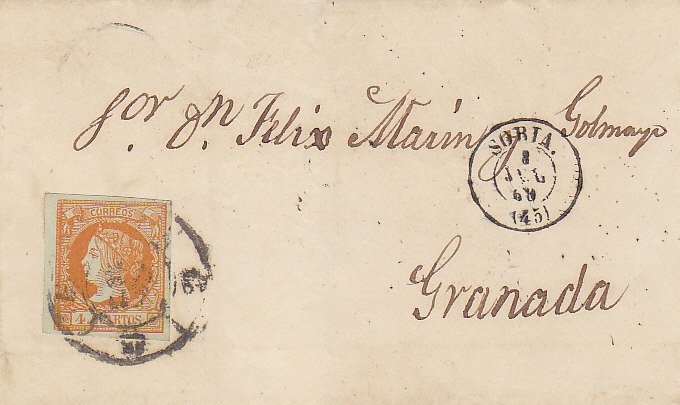 Sor. Dn. Felix Marin y Golmayo
SORIA.
8
JUL
60
(45)
CORREOS
4 CUARTOS
Granada